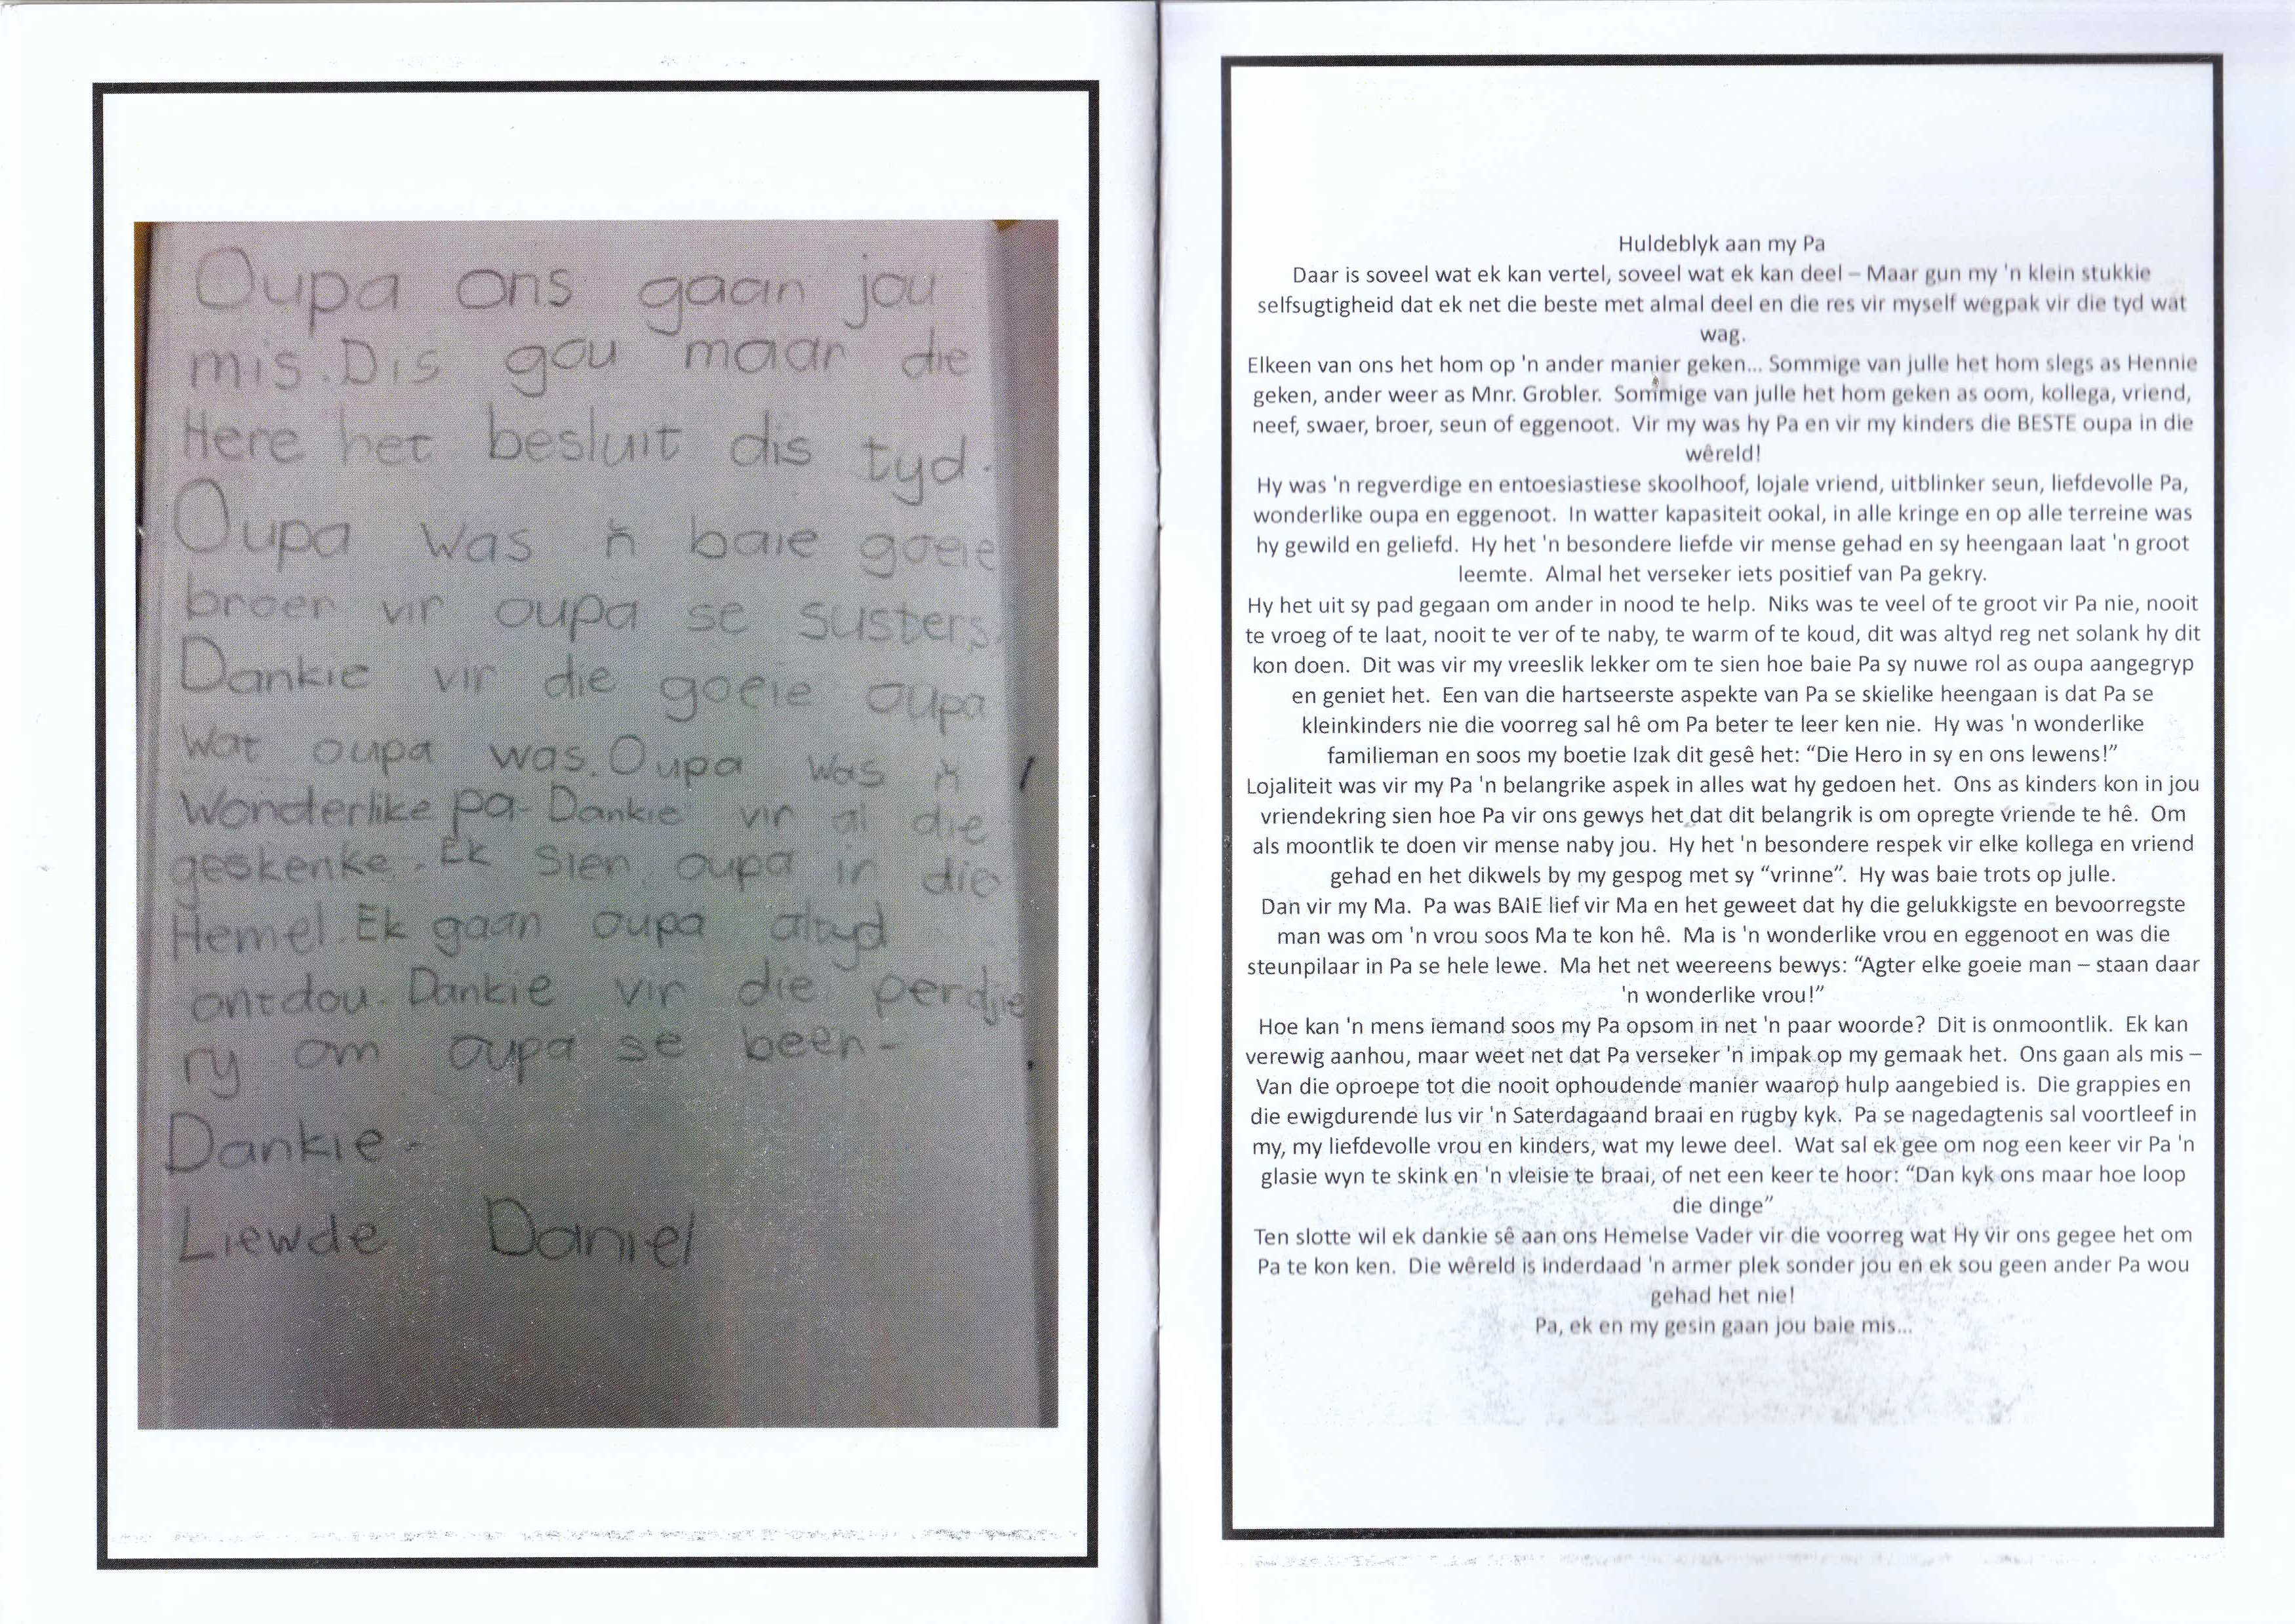 Oupa ons gaan jou
mis. Dis gou maar die
Here het besluit dis tyd.
Oupa was ň baie goeie
broer vir oupa se susters.
Dankie vir die goeie oupa
wat oupa was. Oupa was ň
Wonderlike pa- Dankie vir al die
geskenke. Ek sien oupa in die
Hemel. Ek gaan oupa altyd
ontdou. Dankie vir die perdjie
ry om oupa se been-
Dankie-
Liewde Daniel
Huldeblyk aan my Pa
Daar is soveel wat ek kan vertel, soveel wat ek kan deel – Maar gun my 'n klein stukkie
selfsugtigheid dat ek net die beste met almal deel en die res vir myself wegpak vir die tyd wat
wag.
Elkeen van ons het hom op 'n ander manier geken... Sommige van julle het hom slegs as Hennie
geken, ander weer as Mnr. Grobler. Sommige van julle het hom geken as oom, kollega, vriend,
neef, swaer, broer, seun of eggenoot. Vir my was hy Pa en vir my kinders die BESTE oupa in die
wêreld!
Hy was 'n regverdige en entoesiastiese skoolhoof, lojale vriend, uitblinker seun, liefdevolle Pa,
wonderlike oupa en eggenoot. In watter kapasiteit ookal, in alle kringe en op alle terreine was
hy gewild en geliefd. Hy het 'n besondere liefde vir mense gehad en sy heengaan laat 'n groot
leemte. Almal het verseker iets positief van Pa gekry.
Hy het uit sy pad gegaan om ander in nood te help. Niks was te veel of te groot vir Pa nie, nooit
te vroeg of te laat, nooit te ver of te naby, te warm of te koud, dit was altyd reg net solank hy dit
kon doen. Dit was vir my vreeslik lekker om te sien hoe baie Pa sy nuwe rol as oupa aangegryp
en geniet het. Een van die hartseerste aspekte van Pa se skielike heengaan is dat Pa se
kleinkinders nie die voorreg sal hê om Pa beter te leer ken nie. Hy was 'n wonderlike
familieman en soos my boetie Izak dit gesê het: “Die Hero in sy en ons lewens!”
Lojaliteit was vir my Pa 'n belangrike aspek in alles wat hy gedoen het. Ons as kinders kon in jou
vriendekring sien hoe Pa vir ons gewys het dat dit belangrik is om opregte vriende te hê. Om
als moontlik te doen vir mense naby jou. Hy het 'n besondere respek vir elke kollega en vriend
gehad en het dikwels by my gespog met sy “vrinne”. Hy was baie trots op julle.
Dan vir my Ma. Pa was BAIE lief vir Ma en het geweet dat hy die gelukkigste en bevoorregste
man was om 'n vrou soos Ma te kon hê. Ma is 'n wonderlike vrou en eggenoot en was die
steunpilaar in Pa se hele lewe. Ma het net weereens bewys: “Agter elke goeie man – staan daar
'n wonderlike vrou!”
Hoe kan 'n mens iemand soos my Pa opsom in net 'n paar woorde? Dit is onmoontlik. Ek kan
verewig aanhou, maar weet net dat Pa verseker 'n impak op my gemaak het. Ons gaan als mis –
Van die oproepe tot die nooit ophoudende manier waarop hulp aangebied is. Die grappies en
die ewigdurende lus vir 'n Saterdagaand braai en rugby kyk. Pa se nagedagtenis sal voortleef in
my, my liefdevolle vrou en kinders, wat my lewe deel. Wat sal ek gee om nog een keer vir Pa 'n
glasie wyn te skink en 'n vleisie te braai, of net een keer te hoor: “Dan kyk ons maar hoe loop
die dinge”
Ten slotte wil ek dankie sê aan ons Hemelse Vader vir die voorreg wat Hy vir ons gegee het om
Pa te kon ken. Die wêreld is inderdaad 'n armer plek sonder jou en ek sou geen ander Pa wou
gehad het nie!
Pa, ek en my gesin gaan jou baie mis...